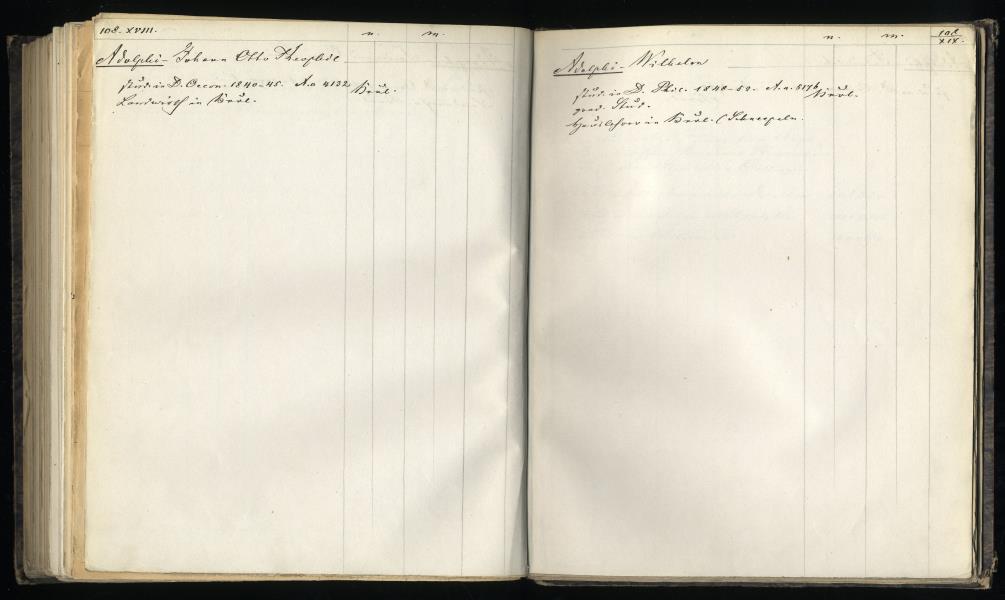 108. XVIII.
n. m.
Adolphi - Johann Otto Theophil
stud. in D. Oecon. 1840-45. A.a 4132 Kurl.
Landwirth in Kurl.
n. m. 108 XIX.
Adolphi - Wilhelm
stud. in D. Phil. 1848-52. A.a. 5176 Kurl.
grad. Stud.
Hauslehrer in Kurl. (Schnepeln.